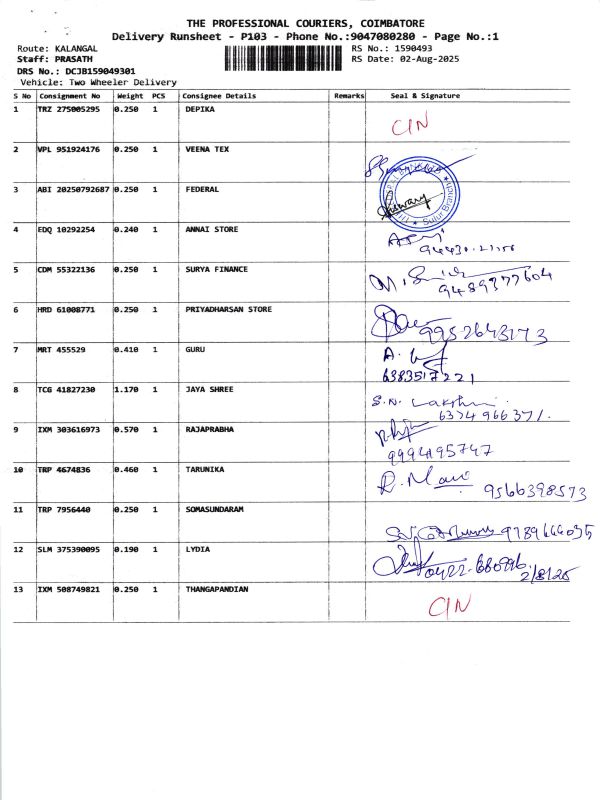 THE PROFESSIONAL COURIERS, COIMBATORE
Delivery Runsheet - P103 - Phone No.:9047080280 - Page No.:1
Route: KALANGAL RS No.: 1590493
Staff: PRASATH RS Date: 02-Aug-2025
DRS No.: DCJB159049301
Vehicle: Two Wheeler Delivery
S No Consignment No Weight PCS Consignee Details Remarks Seal & Signature
1 TRZ 275005295 0.250 1 DEPIKA CIN
2 VPL 951924176 0.250 1 VEENA TEX
3 ABI 20250792687 0.250 1 FEDERAL Sulur Branch
4 EDQ 10292254 0.240 1 ANNAI STORE
5 CDM 55322136 0.250 1 SURYA FINANCE 9489377604
6 HRD 61008771 0.250 1 PRIYADHARSAN STORE 9952643173
7 MRT 455529 0.410 1 GURU 6383517221
8 TCG 41827230 1.170 1 JAYA SHREE S.N. Lakshmi
6374966371.
9 IXM 303616973 0.570 1 RAJAPRABHA 9994195747
10 TRP 4674836 0.460 1 TARUNIKA R. Mani 9566398573
11 TRP 7956440 0.250 1 SOMASUNDARAM 9789666035
12 SLM 375390095 0.190 1 LYDIA 2/8/25
13 IXM 508749821 0.250 1 THANGAPANDIAN CIN